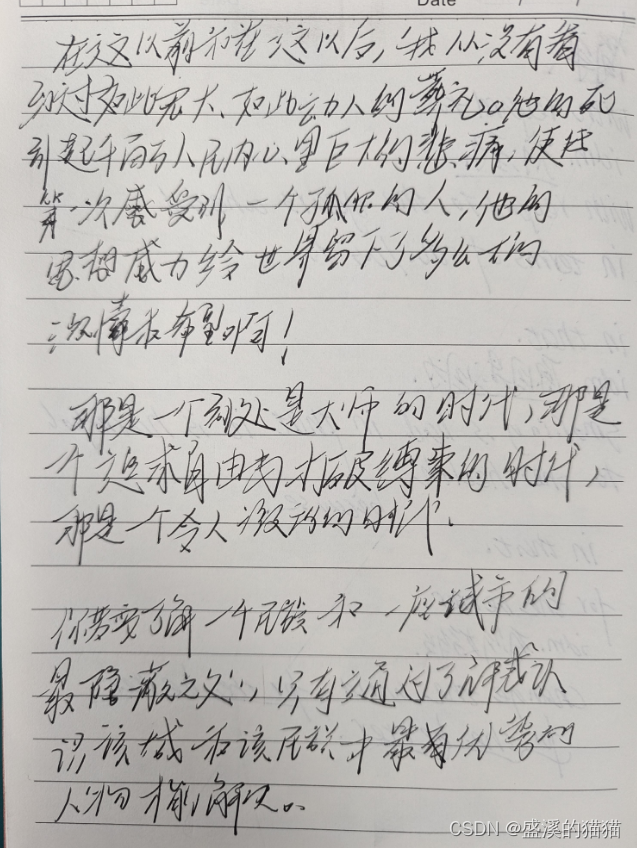 Date / /
在这以前和在这以后,我从没有看
到过如此宏大、如此动人的葬礼。他的死
引起千百万人民内心里巨大的悲痛,使他
第一次感受到一个孤独的人,他的
思想威力给世界留下了多么大的
激情和希望啊!
那是一个到处是大师的时代,那是
一个追求自由与打破缚束的时代,
那是一个令人激动的时代.
你若要了解一个民族和一座城市的
最隐蔽之处,只有通过了解或认
识该城和该民族中最有优势的
人物才能解决。
CSDN @盛溪的猫猫